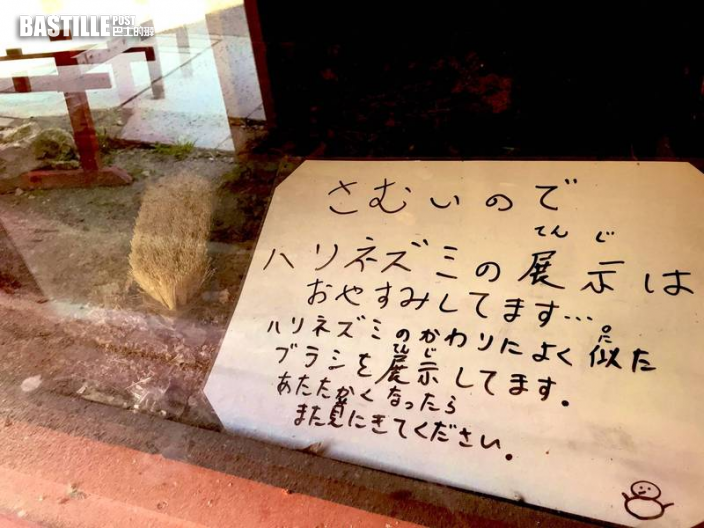 BASTILLE POST
巴士的報
さむいので
てんじ
ハリネズミの展示は
おやすみしてます…
に
ハリネズミのかわりによく似た
てんじ
ブラシを展示してます。
あたたかくなったら
また見にきてください。